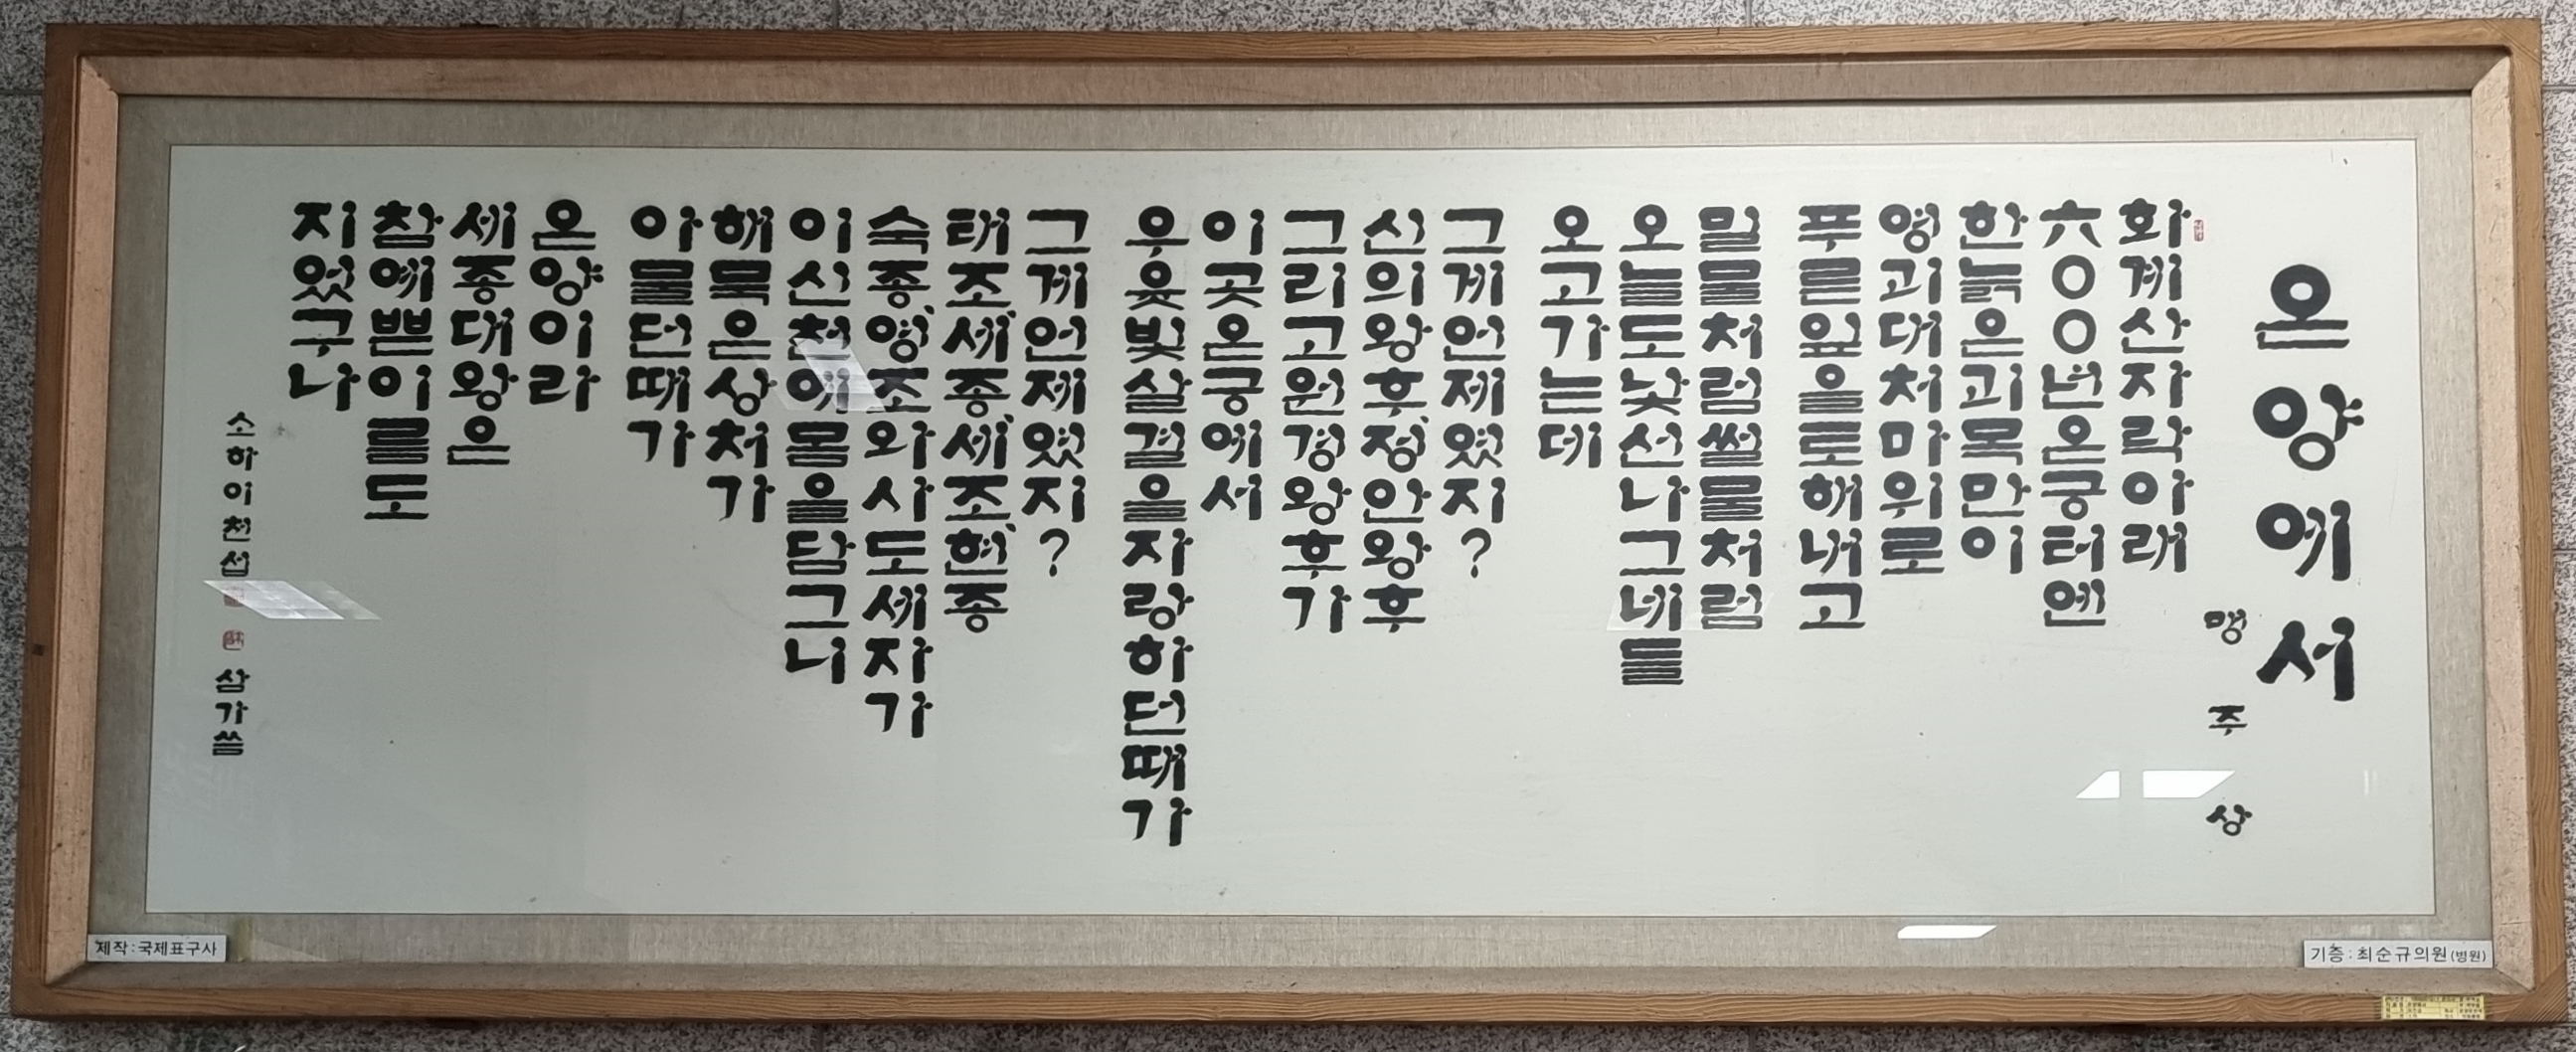 온양에서
맹주상
화계산자락아래
六〇〇년온궁터엔
한늙은괴목만이
영괴대처마위로
푸른잎을토해내고
밀물처럼썰물처럼
오늘도낯선나그네들
오고가는데
그게언제였지?
신의왕후,정안왕후
그리고원경왕후가
이곳온궁에서
우윳빛살결을자랑하던때가
그게언제였지?
태조,세종,세조,현종
숙종,영조와사도세자가
이신천에몸을담그니
해묵은상처가
아물던때가
온양이라
세종대왕은
참예쁜이름도
지었구나
소하이천섭
삼가씀
제작:국제표구사
기증:최순규의원(병원)